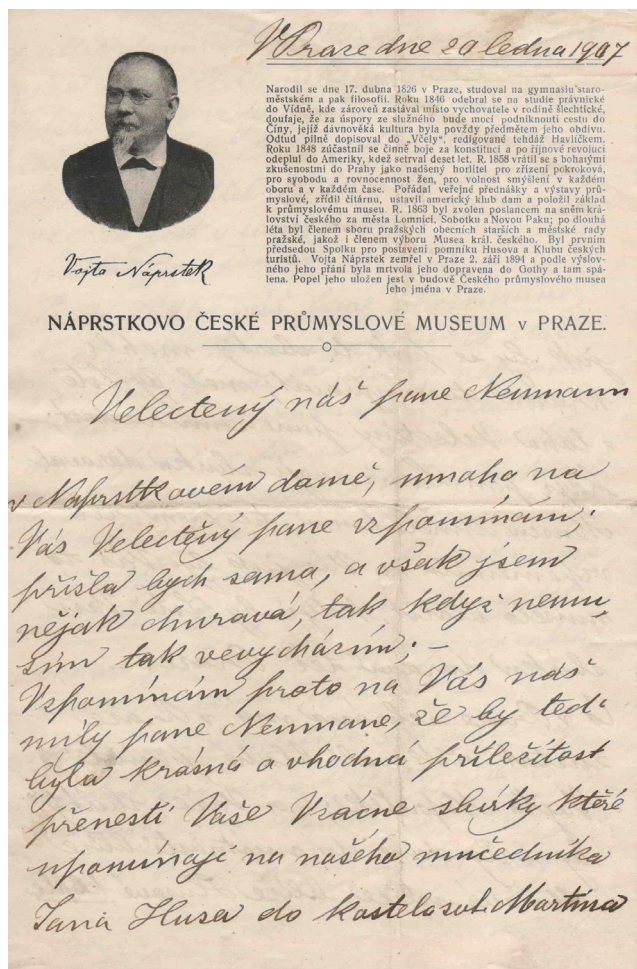 V Praze dne 20 ledna 1907
Narodil se dne 17. dubna 1826 v Praze, studoval na gymnasiu staro-
městském a pak filosofii. Roku 1846 odebral se na studie právnické
do Vídně, kde zároveň zastával místo vychovatele v rodině šlechtické,
doufaje, že za úspory ze služného bude moci podniknouti cestu do
Číny, jejíž dávnověká kultura byla povždy předmětem jeho obdivu.
Odtud pilně dopisoval do „Včely“, redigované tehdáž Havlíčkem.
Roku 1848 zúčastnil se činně boje za konstituci a po říjnové revoluci
odeplul do Ameriky, kdež setrval deset let. R. 1858 vrátil se s bohatými
zkušenostmi do Prahy jako nadšený horlitel pro zřízení pokroková,
pro svobodu a rovnocennost žen, pro volnost smýšlení v každém
oboru a v každém čase. Pořádal veřejné přednášky a výstavy prů-
myslové, zřídil čítárnu, ustavil americký klub dam a položil základ
k průmyslovému museu. R. 1863 byl zvolen poslancem na sněm krá-
lovství českého za města Lomnici, Sobotku a Novou Paku; po dlouhá
léta byl členem sboru pražských obecních starších a městské rady
pražské, jakož i členem výboru Musea král. českého. Byl prvním
předsedou Spolku pro postavení pomníku Husova a Klubu českých
turistů. Vojta Náprstek zemřel v Praze 2. září 1894 a podle výslov-
ného jeho přání byla mrtvola jeho dopravena do Gothy a tam spá-
lena. Popel jeho uložen jest v budově Českého průmyslového musea
jeho jména v Praze.
Vojta Náprstek
NÁPRSTKOVO ČESKÉ PRŮMYSLOVÉ MUSEUM v PRAZE.
Velectený náš pane Neumann
v Náprstkovém domě, mnoho na
Vás Velectěný pane vzpomínám;
přišla bych sama, a však jsem
nějak churavá, tak když nemu,
sím tak nevycházím; –
Vzpomínám proto na Vás náš
milý pane Neumane, že by teď
byla krásná a vhodná příležitost
přenesti Vaše Vzácne sbírky které
upomínají na našeho mučedníka
Jana Husa do kostela svt. Martina